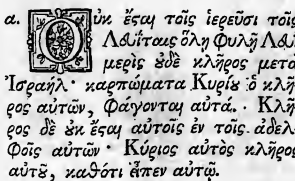 α. Οὐκ ἔσται τοῖς ἱερεῦσι τοῖς
Λευίταις ὅλῃ φυλῇ Λευὶ
μερὶς οὐδὲ κλῆρος μετὰ
Ἰσραήλ· καρπώματα Κυρίου ὁ κλῆ
ρος αὐτῶν, φάγονται αὐτά. · Κλῆ
ρος δὲ οὐκ ἔσται αὐτοῖς ἐν τοῖς ἀδελ
φοῖς αὐτῶν · Κύριος αὐτὸς κλῆρος
αὐτοῦ, καθότι εἶπεν αὐτῷ.